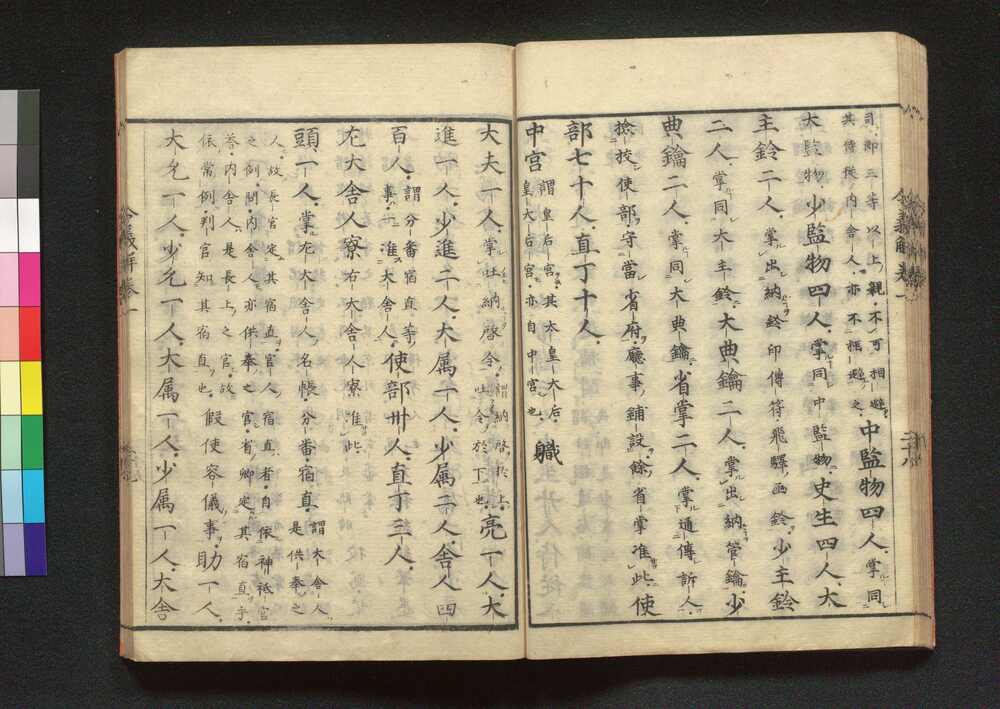 司即三等以上親不可相避
其侍從内舍人亦不相避之
中監物四人掌同
大監物少監物四人掌同中監物史生四人大
主鈴二人掌出納鈴印傳符飛驛函鈴少主鈴
二人掌同大主鈴大典鑰二人掌出納管鑰少
典鑰二人掌同大典鑰省掌二人掌通傳訴人
撿挍使部守當省府廳事鋪設餘省掌准此使
部七十人直丁十人
中宮
謂皇后宮其太皇大后
皇大后宮亦自中宮也
職
大夫一人掌吐納啓令
謂納啓於上
吐令於下也
亮一人大
進一人少進二人大属一人少属二人舍人四
百人
謂分番宿直等
事准大舍人
使部卅人直丁三人
左大舍人寮右大舍人寮准此
頭一人掌左大舍人名帳分番宿直
謂大舍人
是供奉之
人故長官定其宿直官人宿直者自依神祇官
之例問内舍人亦供奉之官省卿定其宿直乎
答内舍人是長上之官故
依常例判官知其宿直也
假使容儀事助一人
大允一人少允一人大属一人少属一人大舍
令義解卷一